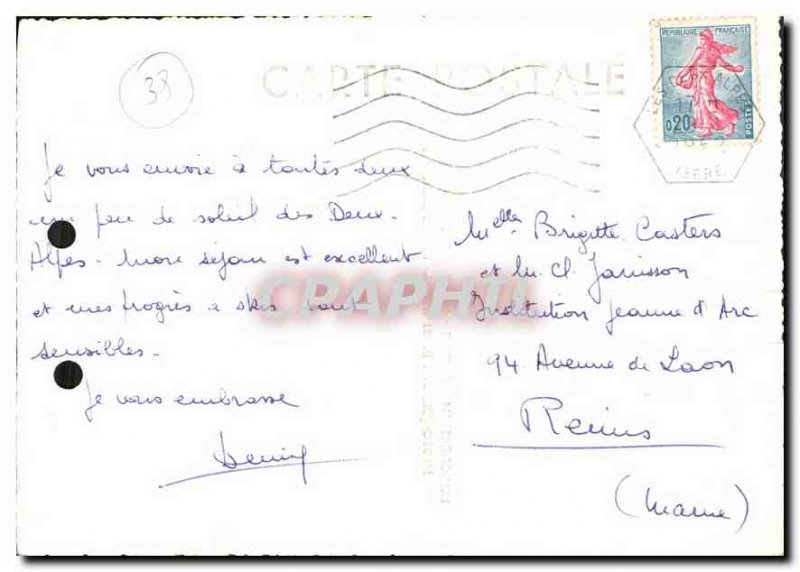 38
CARTE POSTALE
RÉPUBLIQUE FRANÇAISE
0,20
POSTES
ISERE
Je vous envoie à toutes deux
un peu de soleil des Deux-
Alpes - Mon séjour est excellent
et mes progrès à skis sont
sensibles -
Je vous embrasse
CRAPHTI
Melles Brigitte Casters
et M. Cl. Janisson
Institution Jeanne d'Arc
94 Avenue de Laon
Reims
(Marne)